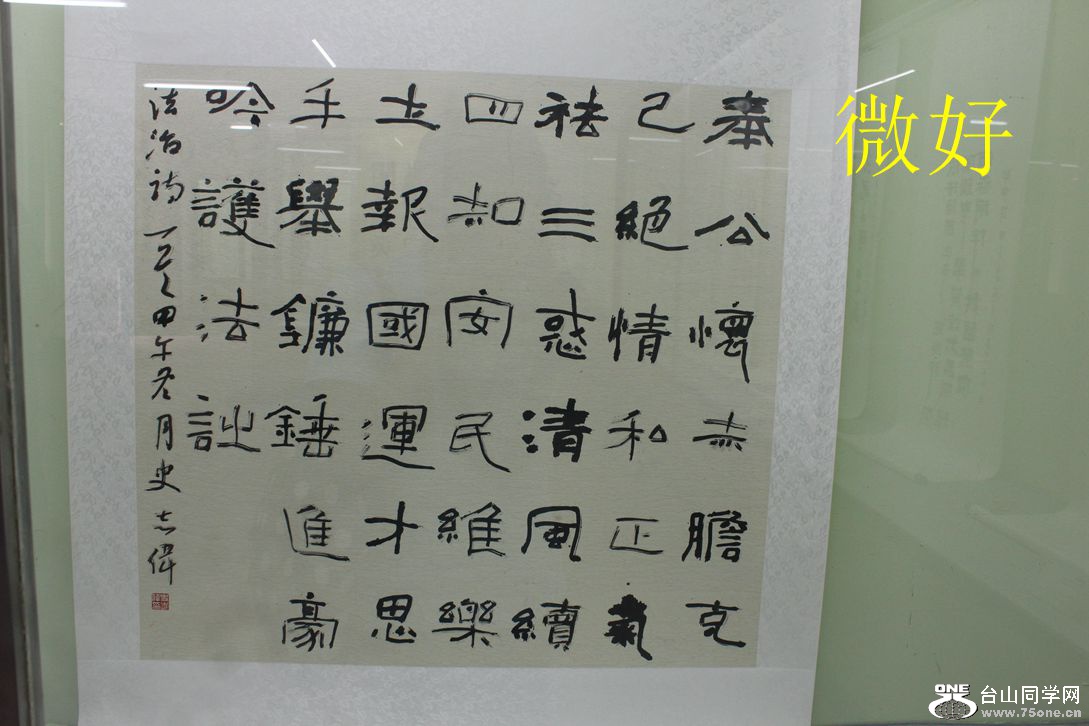 奉公懷赤膽克
己絕情和正氣
祛三惑清風續
四知安民維樂
土報國運才思
手舉鐮錘進豪
吟護法詘
法治詩一又甲午冬月史志偉
微好
ONE 台山同学网
www.75one.cn